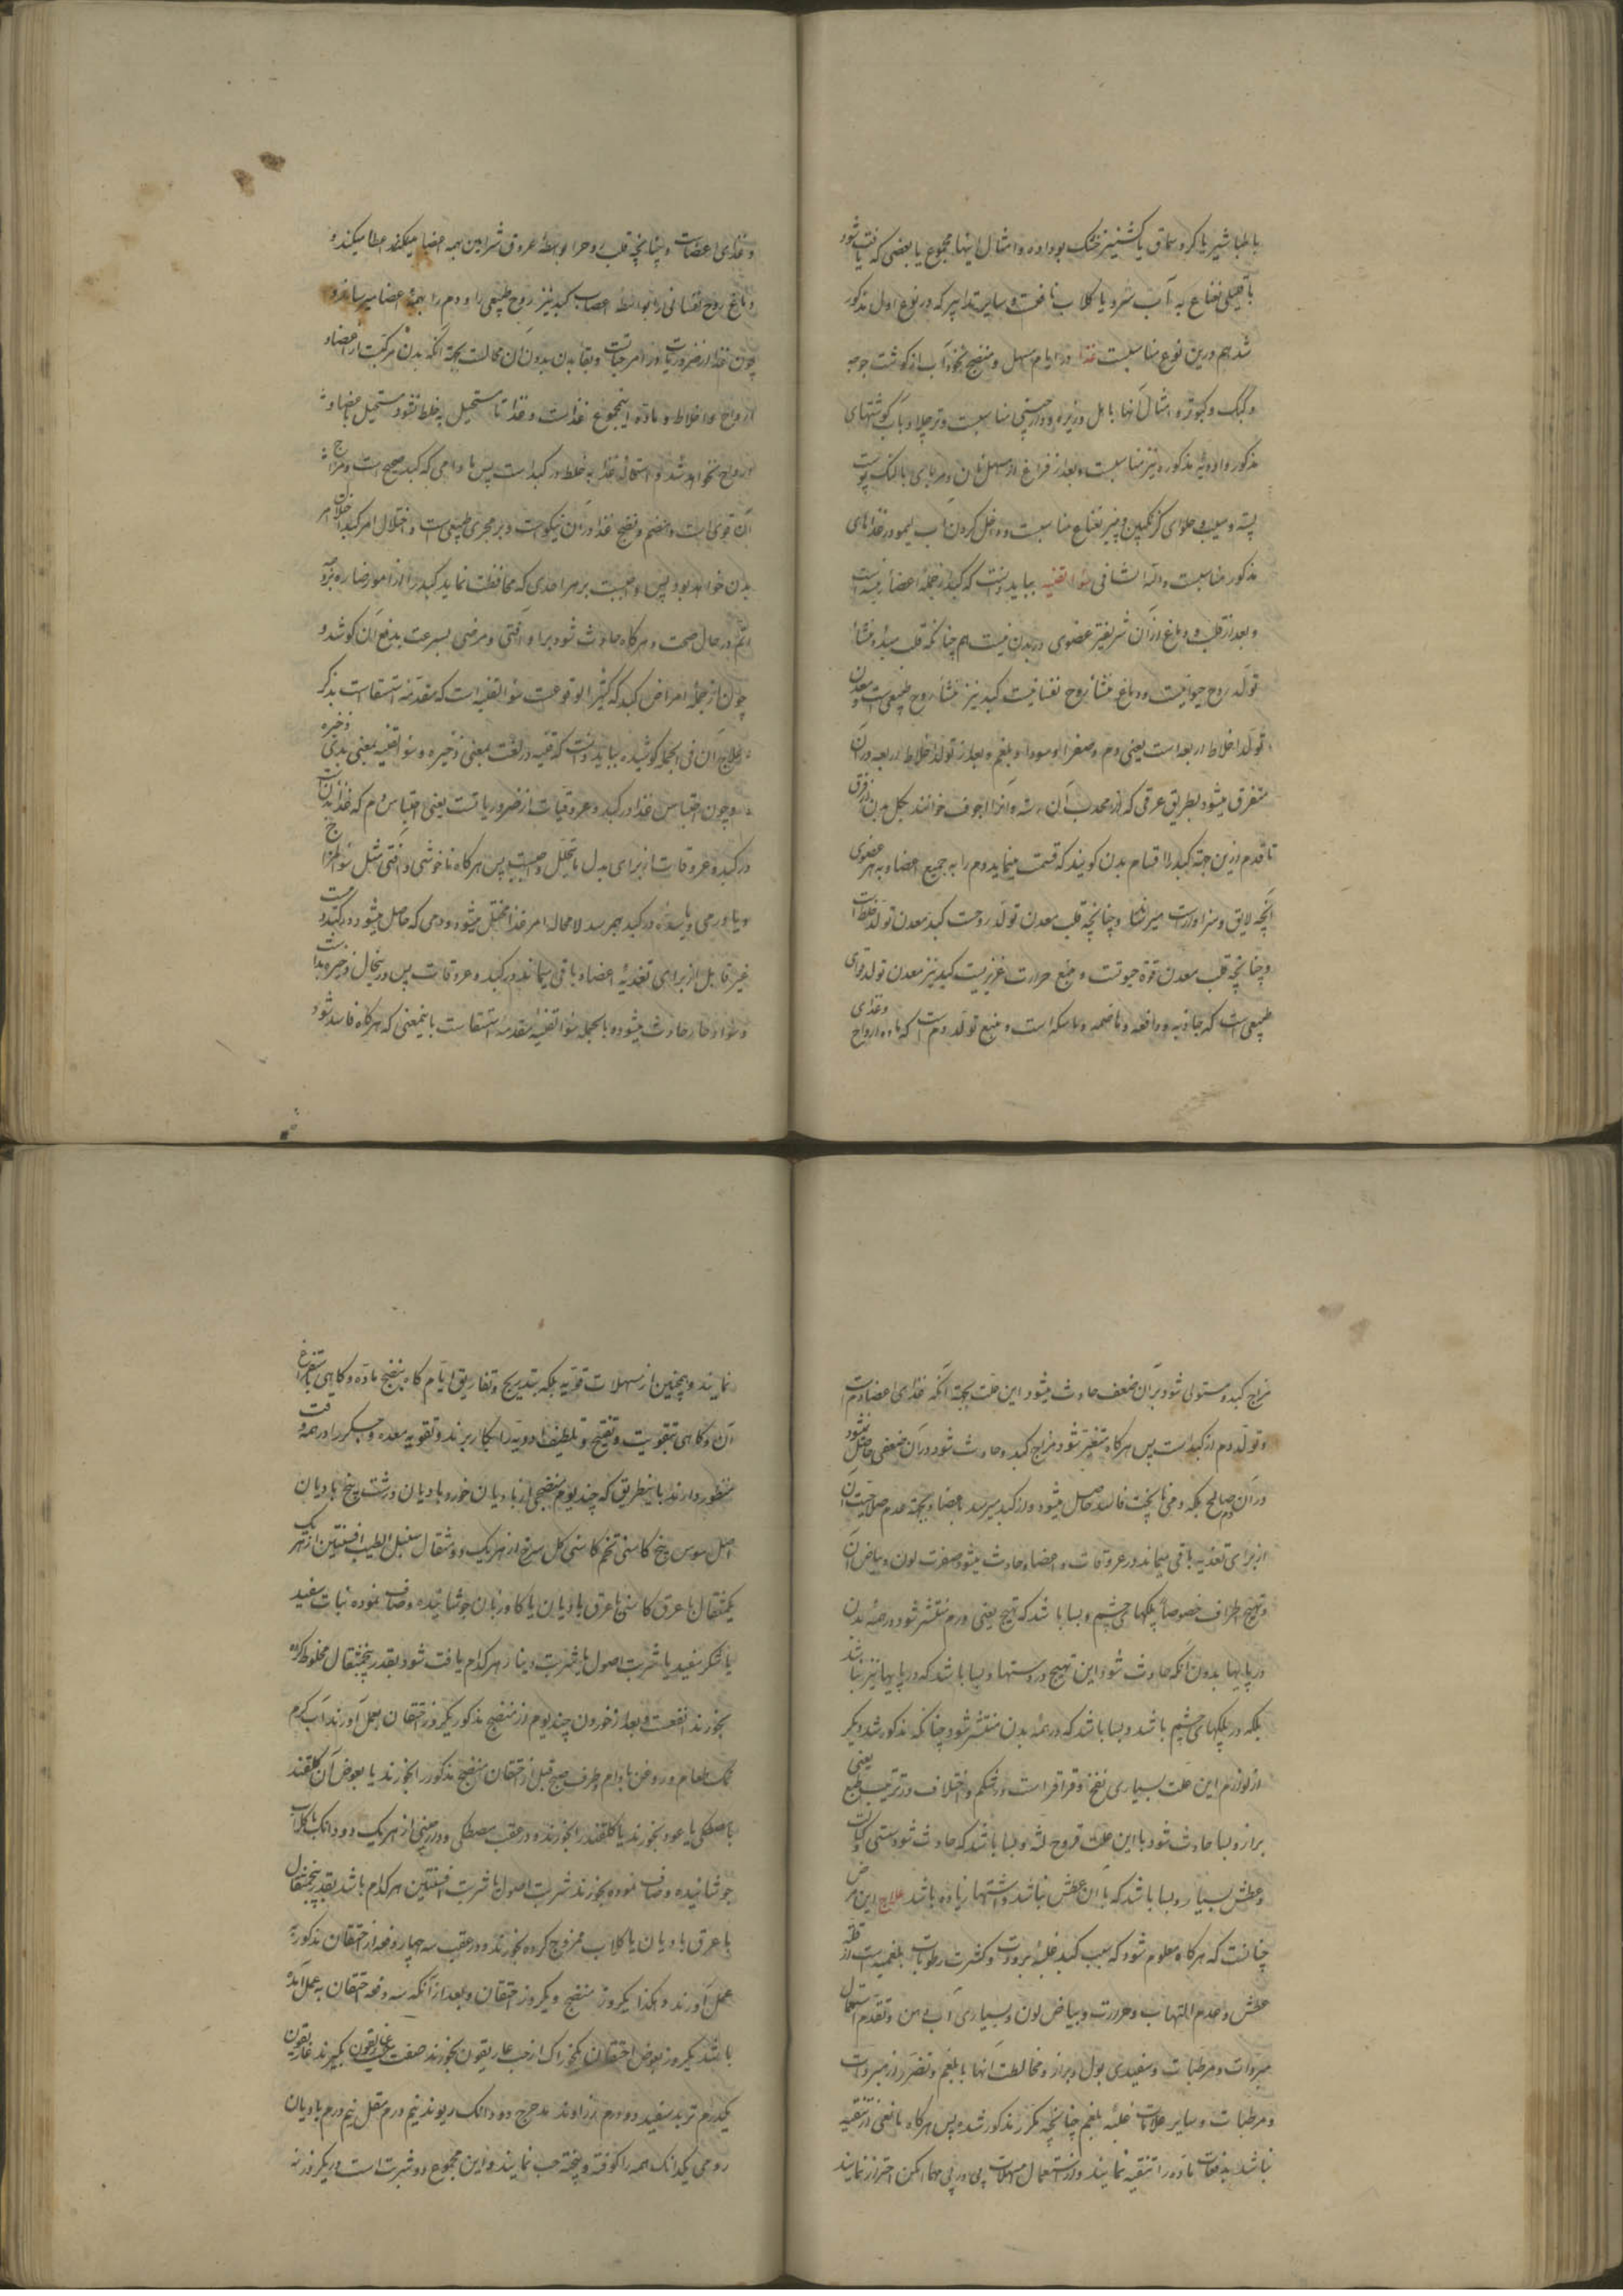 با طباشیر یا کرد سماق یا کشنیز خشک بو داده و امثال اینها مجموع یا بعضی که یافت شود
با قلیلی نعناع به آب سرد یا کلاب نافعست و سایر تدابیر که در نوع اول مذکور
شد هم درین نوع مناسبست غذا در ایام مسهل و منضج نخود آب از کوشت جوجه
و کبک و کبوتر و امثال آنها با هل و زیره و دارچینی مناسبست و تر چلاو با آب کوشتهای
مذکور و ادویهٔ مذکوره نیز مناسبست و بعد از فراغ از مسهل نان و مربای بالنک پوست
پسته و سیب و حلوای کزنکبین و پنیر نعناع مناسبست و داخل کردن آب لیمو در غذاهای
مذکور مناسبست والله الشافی سوء القنیه بباید دانست که کبد از جملهٔ اعضاء رئیسه است
و بعد از قلب و دماغ از آن شریفتر عضوی در بدن نیست هم چنانکه قلب مبدء و منشاء
تولد روح حیوانیست و دماغ منشاء روح نفسانیست کبد نیز منشاء روح طبیعی است و معدن
تولد اخلاط اربعه است یعنی دم و صفرا و سودا و بلغم و بعد از تولد اخلاط اربعه در آن
متفرق میشود بطریق عرقی که از محدب آن رسته و آنرا اجوف خوانند بکل بدن از فرق
تا قدم ازین جهة کبد را قسام بدن کویند که قسمت مینماید دم را به جمیع اعضا و بهر عضوی
آنچه لایق و سزاوارست میرساند و چنانچه قلب معدن تولد روحست کبد معدن تولد خلط است
و چنانچه قلب معدن قوة حیوتست و منبع حرارت غریزیست کبد نیز معدن تولد قوای
طبیعی است که جاذبه و دافعه و هاضمه و ماسکه است و منبع تولد دم است که ماده ارواح و غذای
و غذای اعضاست و چنانچه قلب روح را بواسطهٔ عروق شرائین بهمه اعضا میکند اعطا میکند و
دماغ روح نفسانی را بواسطهٔ اعصاب کبد نیز روح طبیعی را و دم را بهمهٔ اعضا میرساند و
چون غذا از ضروریات و از امر حیاتست و بقاء بدن بدون آن محالست بجهة آنکه بدن مرکبست از اعضا و
ارواح و اخلاط و مادهٔ اینمجموع غذاست و غذا تا مستحیل بخلط نشود مستحیل باعضا و
ارواح نخواهد شد و استحالهٔ غذا بخلط در کبد است پس مادامی که کبد صحیح است و مزاج
آن قوی است و هضم و نضج غذا در آن نیکوست و بر مجری طبیعی است و اختلال امر کبد اختلال امر
بدن خواهد بود پس واجبست بر هر احدی که محافظت نماید کبد را از امور ضاره بر وجه
اتم در حال صحت و هرکاه حادث شود بر او آفتی و مرضی بسرعت بدفع آن کوشد و
چون از جملهٔ امراض کبد که کثیر الوقوعست سوء القنیه است که مقدمهٔ استسقاست بذکر
علاج آن فی الجمله کوشیده بباید دانست که قنیه در لغت بمعنی ذخیره و سوء القنیه بمعنی بدی ذخیره
و چون احتباس غذا در کبد و عروقیات از ضروریاتست یعنی احتباس دم که غذاء بدنست
در کبد و عروقات از برای بدل ما یتحلل واجبست پس هرکاه ناخوشی و آفتی مثل سوء المزاج
و یا ورمی و یا سدهٔ در کبد بهم رسد لامحاله امر غذا مختل میشود و دمی که حاصل میشود در کبد
غیر قابل از برای تغذیهٔ اعضا و باقی میماند در کبد و عروقات پس در ینحال ذخیره بد است
و سوء ادخار حادث میشود و بالجمله سوء القنیه مقدمهٔ استسقاست باینمعنی که هرکاه فاسد شود
مزاج کبد و مستولی شود بر آن ضعف حادث میشود این علت بجهة آنکه غذای اعضا دم است
و تولد دم از کبد است پس هرکاه متغیر شود مزاج کبد و حادث شود در آن ضعفی حاصل نمیشود
در آن دم صالح بلکه دمی ناپخت فاسد حاصل میشود و از کبد میرسد باعضا و بجهة عدم صلاحیت آن
از برای تغذیه باقی میماند در عروقات و اعضا و حادث میشود صفرت لون و بیاض آن
و تهیج اطراف خصوصا پلکهای چشم و بسا باشد که تهیج یعنی ورم منتشر شود در همهٔ بدن
در پایها بدون آنکه حادث شود این تهیج در دستها و بسا باشد که در پایها نیز نباشد
بلکه در پلکهای چشم باشد و بسا باشد که در همهٔ بدن منتشر شود چنانکه مذکور شد و دیکر
از لوازم این علت بسیاری نفخ و قراقر است در شکم و اختلاف در ترتیب طبع یعنی
براز و بسا حادث شود با این علت قروح لثه و بسا باشد که حادث شود سستی و کسالت
و عطش بسیار و بسا باشد که با آن عطش نباشد و اشتها زیاده باشد علاج این مرض
چنانست که هرکاه معلوم شود که سبب کبد غلبهٔ برودت و کثرت رطوبات بلغمیست از قلة
عطش و عدم التهاب و حرارت و بیاض لون و بسیاری آب دهن و تقدم استعمال
مبردات و مرطبات و سفیدی بول و براز و مخالطت آنها با بلغم و تضرر از مبردات
و مرطبات و سایر علامات غلبهٔ بلغم چنانچه مکرر مذکور شد پس هرکاه مانعی از تنقیه
نباشد بدفعات ماده را تنقیه نمایند و از استعمال مسهلات پی در پی مهما امکن احتراز نمایند
نمایند و همچنین از مسهلات قویه بلکه بتدریج و تفاریق ایام کاه بنضج ماده و کاهی باستفراغ
آن و کاهی بتقویت و تفتیح و تلطیف ادویه را بکار برند و تقویه معده و جکر را در همه وقت
منظور دارند باینطریق که چند یوم منضجی از بادیان خورد بادیان درشت بیخ بادیان
اصل سوس بیخ کاسنی تخم کاسنی کل سرخ از هر یک دو مثقال سنبل الطیب افسنتین از هر یک
یکمثقال با عرق کاسنی یا عرق بادیان یا کاوزبان جوشانیده و صاف نموده نبات سفید
یا شکر سفید یا شربت اصول یا شربت دینار هر کدام یافت شود بقدر پنجمثقال مخلوط کرده
بخورند انفعست و بعد از خوردن چند یوم از منضج مذکور یکروز احتقان بعمل آورند آب کرم
نمک طعام و روغن بادام و طرف صبح قبل از احتقان منضج مذکور را بخورند یا بعوض آن کلقند
با مصطکی یا عود بخورند یا کلقند را بخورند و در عقب مصطکی و دارچینی از هر یک دو دانک با کلاب
جوشانیده و صاف نموده بخورند شربت اصول یا شربت افسنتین هر کدام باشد بقدر پنجمثقال
با عرق بادیان یا کلاب ممزوج کرده بخورند و در عقب سه چهار دفعه از احتقان مذکور به
عمل آورند و هکذا یکروز منضج و یکروز احتقان و بعد از آنکه سه دفعه احتقان به عمل آمده
باشد یکروز بعوض احتقان یکخوراک از حب غاریقون بخورند صفت حب غاریقون بکیرند غاریقون
یکدرم تربد سفید دو درم زراوند مدحرج دو دانک ریوند نیم درم مقل نیم درم بادیان
رومی یکدانک همه را کوفته و بیخته حب نمایند و این مجموع دو شربت است و یکروز نه